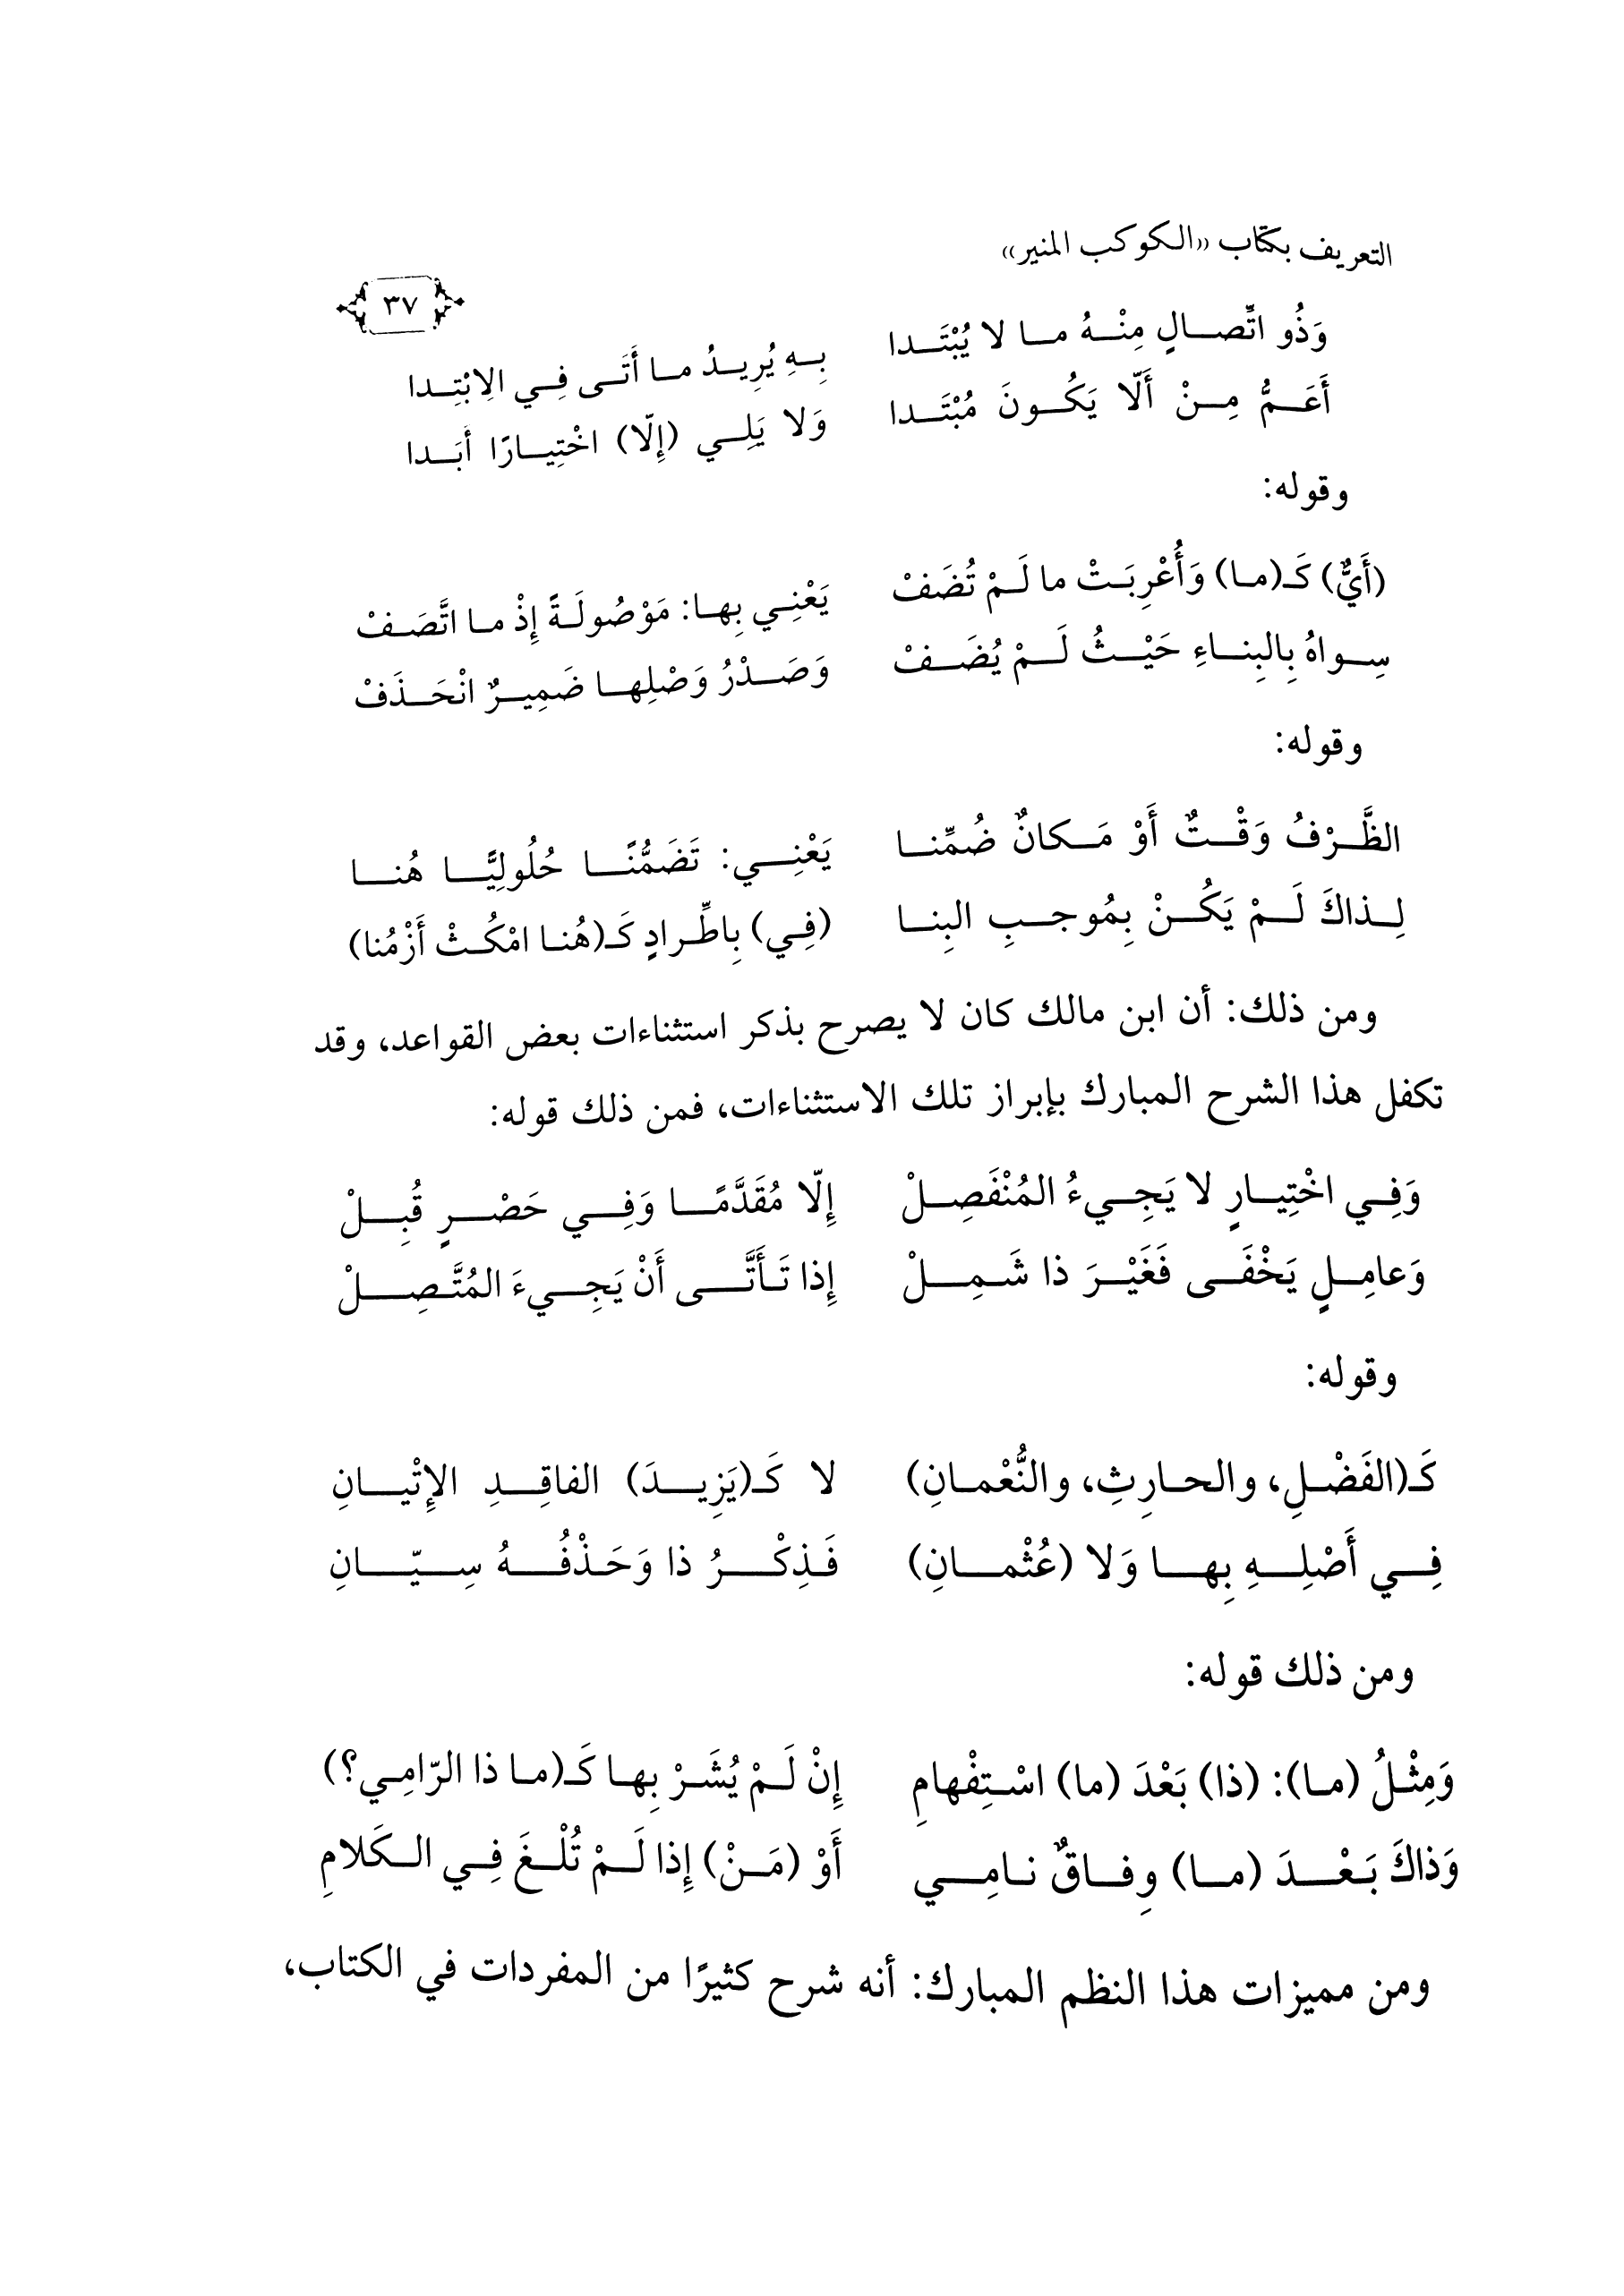 التعريف بكتاب «الكوكب المنير»
٣٧
وَذُو اتِّصالٍ مِنْهُ ما لا يُبْتَدا بِهِ يُرِيدُ ما أَتَى فِي الِابْتِدا
أَعَمُّ مِنْ أَلّا يَكُونَ مُبْتَدا وَلا يَلِي (إِلّا) اخْتِيارًا أَبَدا
وقوله:
(أَيٌّ) كَـ(ما) وَأُعْرِبَتْ ما لَمْ تُضَفْ يَعْنِي بِها: مَوْصُولَةً إِذْ ما اتَّصَفْ
سِواهُ بِالبِناءِ حَيْثُ لَمْ يُضَفْ وَصَدْرُ وَصْلِها ضَمِيرٌ انْحَذَفْ
وقوله:
الظَّرْفُ وَقْتٌ أَوْ مَكانٌ ضُمِّنا يَعْنِي: تَضَمُّنًا حُلُولِيًّا هُنا
لِذاكَ لَمْ يَكُنْ بِمُوجِبِ البِنا (فِي) بِاطِّرادٍ كَـ(هُنا امْكُثْ أَزْمُنا)
ومن ذلك: أن ابن مالك كان لا يصرح بذكر استثناءات بعض القواعد، وقد
تكفل هذا الشرح المبارك بإبراز تلك الاستثناءات، فمن ذلك قوله:
وَفِي اخْتِيارٍ لا يَجِيءُ المُنْفَصِلْ إِلّا مُقَدَّمًا وَفِي حَصْرٍ قُبِلْ
وَعامِلٍ يَخْفَى فَغَيْرَ ذا شَمِلْ إِذا تَأَتَّى أَنْ يَجِيءَ المُتَّصِلْ
وقوله:
كَـ(الفَضْلِ، والحارِثِ، والنُّعْمانِ) لا كَـ(يَزِيدَ) الفاقِدِ الإِتْيانِ
فِي أَصْلِهِ بِها وَلا (عُثْمانِ) فَذِكْرُ ذا وَحَذْفُهُ سِيّانِ
ومن ذلك قوله:
وَمِثْلُ (ما): (ذا) بَعْدَ (ما) اسْتِفْهامِ إِنْ لَمْ يُشَرْ بِها كَـ(ما ذا الرّامِي؟)
وَذاكَ بَعْدَ (ما) وِفاقٌ نامِي أَوْ (مَنْ) إِذا لَمْ تُلْغَ فِي الكَلامِ
ومن مميزات هذا النظم المبارك: أنه شرح كثيرًا من المفردات في الكتاب،